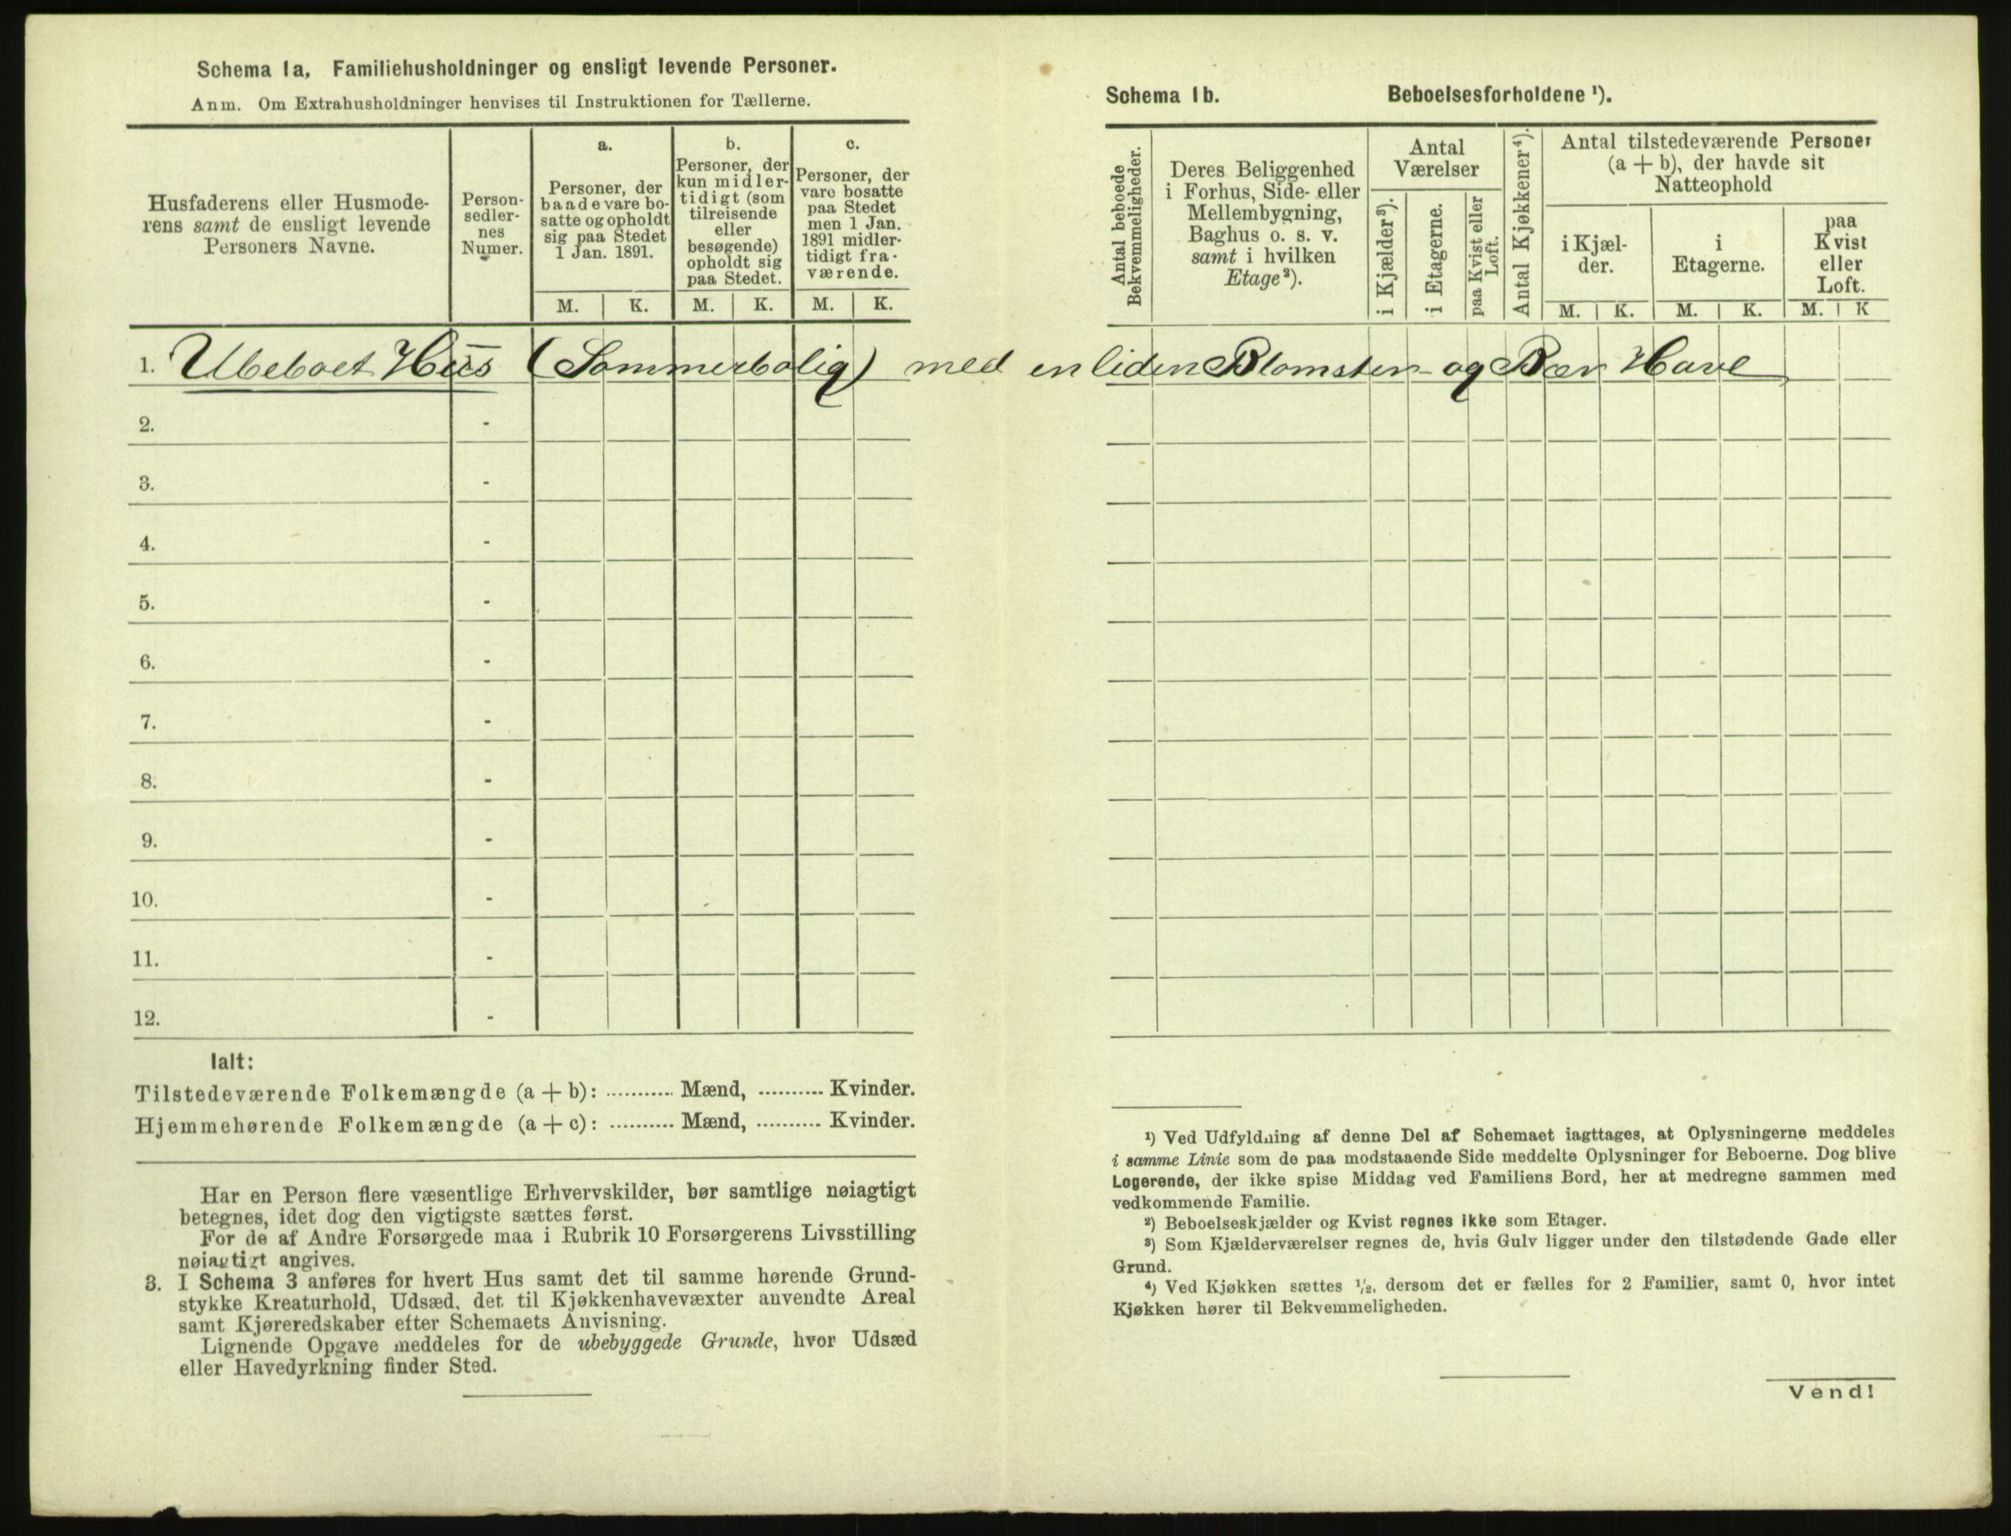 Schema 1a, Familiehusholdninger og ensligt levende Personer.
Anm. Om Extrahusholdninger henvises til Instruktionen for Tællerne.
Husfaderens eller Husmode-
rens samt de ensligt levende
Personers Navne.
Person-
sedler-
nes
Numer.
a.
Personer, der
baade vare bo-
satte og opholdt
sig paa Stedet
1 Jan. 1891.
b.
Personer, der
kun midler-
tidigt (som
tilreisende
eller
besøgende)
opholdt sig
paa Stedet.
c.
Personer, der
vare bosatte
paa Stedet
men 1 Jan.
1891 midler-
tidigt fra-
værende.
M. K. M. K. M. K.
Schema 1b. Beboelsesforholdene ¹).
Antal beboede
Bekvemmeligheder.
Deres Beliggenhed
i Forhus, Side- eller
Mellembygning,
Baghus o. s. v.
samt i hvilken
Etage²).
Antal
Værelser
i Kjælder³).
i Etagerne.
paa Kvist eller
Loft.
Antal Kjøkkener⁴).
Antal tilstedeværende Personer
(a + b), der havde sit
Natteophold
i Kjæl-
der.
i
Etagerne.
paa
Kvist
eller
Loft.
M. K. M. K. M. K
1. Ubeboet Hus (Sommerbolig) med en liden Blomster- og Bær Have
2. -
3. -
4. -
5. -
6. -
7. -
8. -
9. -
10. -
11. -
12. -
Ialt:
Tilstedeværende Folkemængde (a + b): .......... Mænd, .......... Kvinder.
Hjemmehørende Folkemængde (a + c): .......... Mænd, .......... Kvinder.
Har en Person flere væsentlige Erhvervskilder, bør samtlige nøiagtigt
betegnes, idet dog den vigtigste sættes først.
For de af Andre Forsørgede maa i Rubrik 10 Forsørgerens Livsstilling
nøiagtigt angives.
3. I Schema 3 anføres for hvert Hus samt det til samme hørende Grund-
stykke Kreaturhold, Udsæd, det til Kjøkkenhavevæxter anvendte Areal
samt Kjøreredskaber efter Schemaets Anvisning.
Lignende Opgave meddeles for de ubebyggede Grunde, hvor Udsæd
eller Havedyrkning finder Sted.
¹) Ved Udfyldning af denne Del af Schemaet iagttages, at Oplysningerne meddeles
i samme Linie som de paa modstaaende Side meddelte Oplysninger for Beboerne. Dog blive
Logerende, der ikke spise Middag ved Familiens Bord, her at medregne sammen med
vedkommende Familie.
²) Beboelseskjælder og Kvist regnes ikke som Etager.
³) Som Kjælderværelser regnes de, hvis Gulv ligger under den tilstødende Gade eller
Grund.
⁴) Ved Kjøkken sættes ¹/₂, dersom det er fælles for 2 Familier, samt 0, hvor intet
Kjøkken hører til Bekvemmeligheden.
Vend!